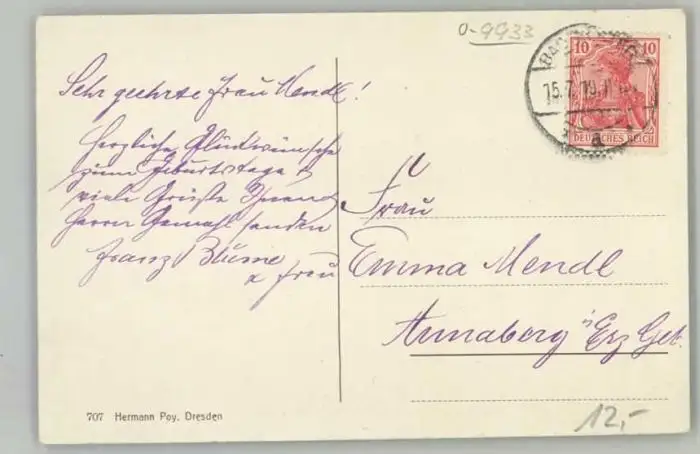 0-9933
10 10
15.7. 19. 11
DEUTSCHES REICH
a
Sehr geehrte Frau Mendl!
Herzliche Glückwünsche
zum Geburtstage &
viele Grüße Ihnen &
Herrn Gemahl senden
Franz Blüme
& Frau
Frau
Emma Mendl
Annaberg i/Erz Geb.
707 Hermann Poy, Dresden
12,-